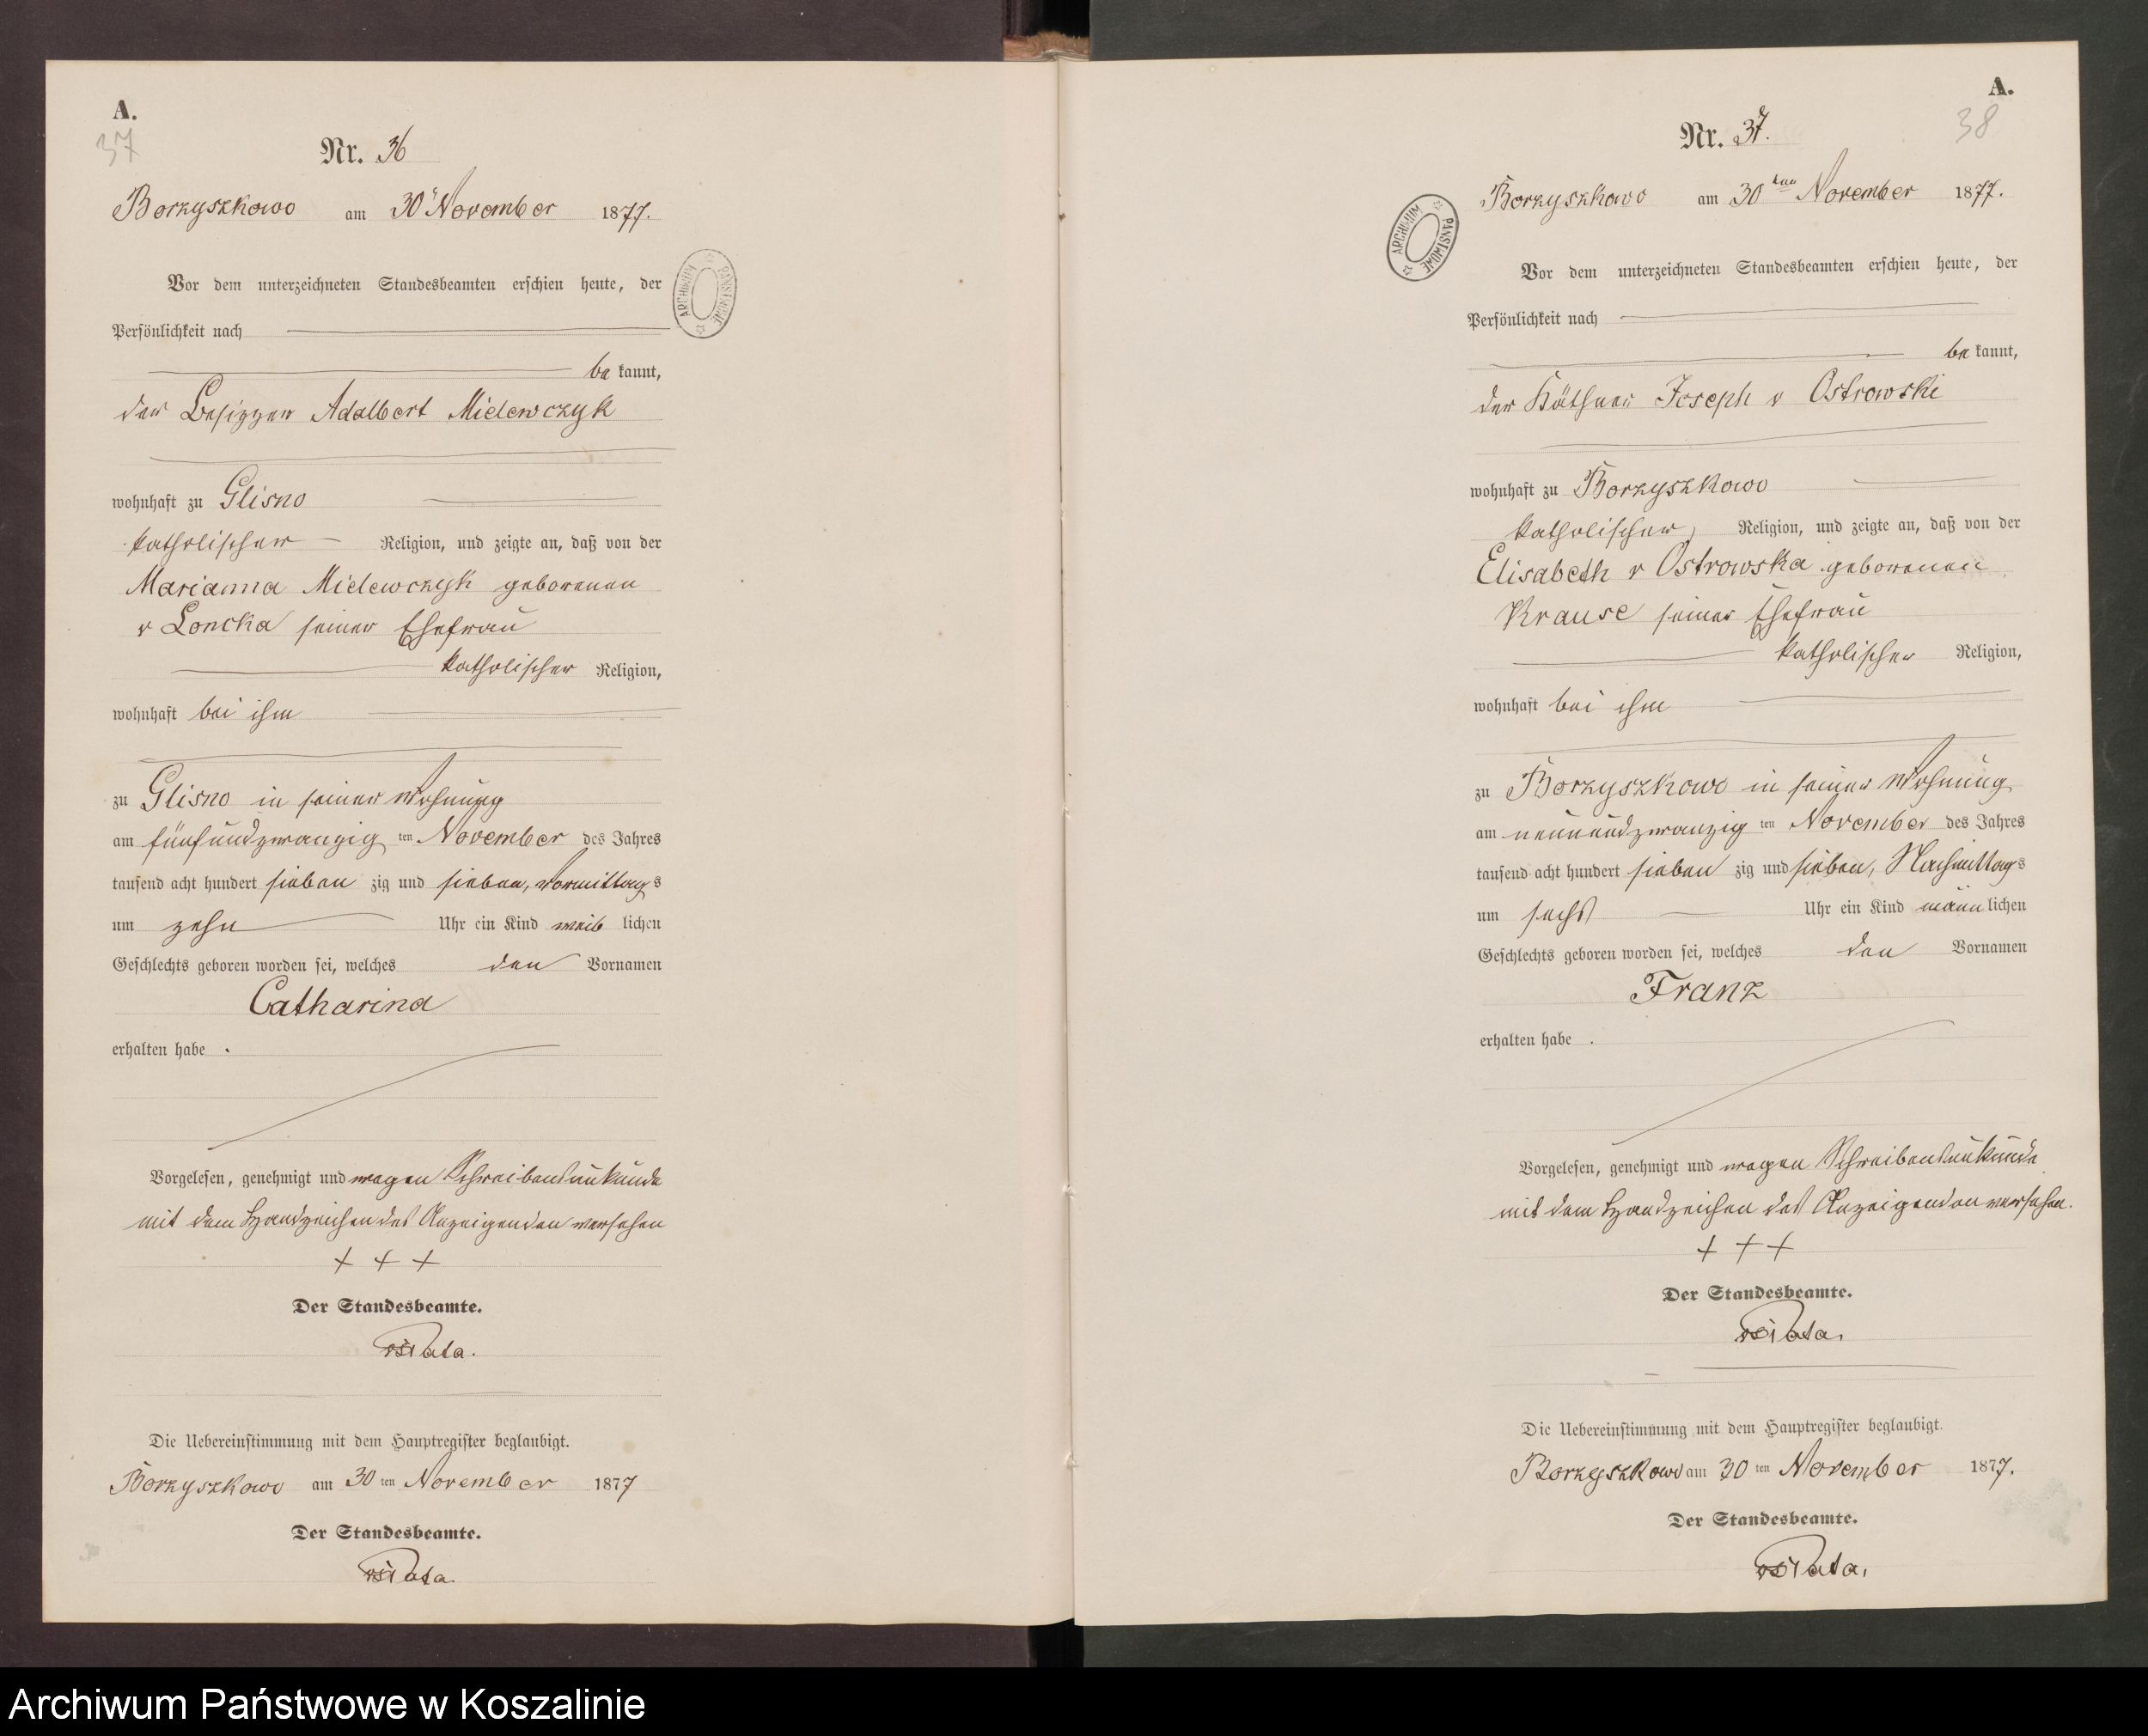 A.
37
Nr. 36
Borzyszkowo am 30 November 1877.
Vor dem unterzeichneten Standesbeamten erschien heute, der
Persönlichkeit nach
be kannt,
der Besitzer Adalbert Mielewczyk
wohnhaft zu Glisno
katholischer Religion, und zeigte an, daß von der
Marianna Mielewczyk geborenen
v Loncka seiner Ehefrau
katholischer Religion,
wohnhaft bei ihm
zu Glisno in seiner Wohnung
am fünfundzwanzig ten November des Jahres
tausend acht hundert sieben zig und sieben, Vormittags
um zehn Uhr ein Kind weib lichen
Geschlechts geboren worden sei, welches den Vornamen
Catharina
erhalten habe .
Vorgelesen, genehmigt und wegen Schreibensunkunde
mit dem Handzeichen des Anzeigenden versehen
+ + +
Der Standesbeamte.
Die Uebereinstimmung mit dem Hauptregister beglaubigt.
Borzyszkowo am 30 ten November 1877
Der Standesbeamte.
ARCHIWUM PAŃSTWOWE
A.
38
Nr. 37.
Borzyszkowo am 30 ten November 1877.
Vor dem unterzeichneten Standesbeamten erschien heute, der
Persönlichkeit nach
be kannt,
der Käthner Joseph v Ostrowski
wohnhaft zu Borzyszkowo
katholischer, Religion, und zeigte an, daß von der
Elisabeth v Ostrowska geborenen
Krause seiner Ehefrau
katholischer Religion,
wohnhaft bei ihm
zu Borzyszkowo in seiner Wohnung
am neunundzwanzig ten November des Jahres
tausend acht hundert sieben zig und sieben, Nachmittags
um sechs Uhr ein Kind männ lichen
Geschlechts geboren worden sei, welches den Vornamen
Franz
erhalten habe .
Vorgelesen, genehmigt und wegen Schreibensunkunde
mit dem Handzeichen des Anzeigenden versehen.
+ + +
Der Standesbeamte.
Die Uebereinstimmung mit dem Hauptregister beglaubigt.
Borzyszkowo am 30 ten November 1877.
Der Standesbeamte.
ARCHIWUM PAŃSTWOWE
Archiwum Państwowe w Koszalinie